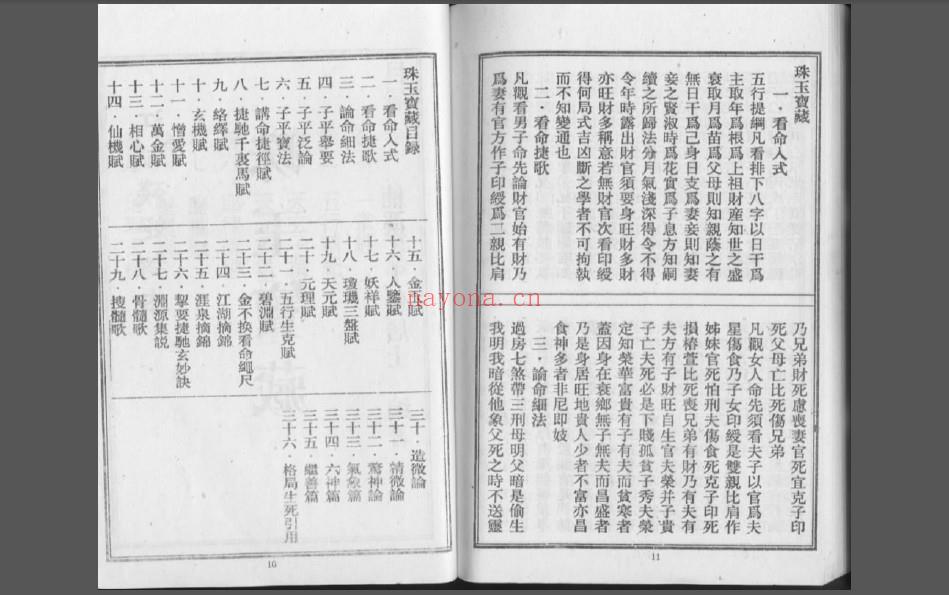 珠玉寶藏目録
一．看命入式
二．看命捷歌
三．論命細法
四．子平舉要
五．子平泛論
六．子平寶法
七．講命捷徑賦
八．捷馳千裏馬賦
九．絡繹賦
十．玄機賦
十一．憎愛賦
十二．萬金賦
十三．相心賦
十四．仙機賦
十五．金玉賦
十六．人鑒賦
十七．妖祥賦
十八．瓊璣三盤賦
十九．天元賦
二十．元理賦
二十一．五行生克賦
二十二．碧淵賦
二十三．金不换看命繩尺
二十四．江湖摘錦
二十五．涯泉摘錦
二十六．挈要捷馳玄妙訣
二十七．淵源集説
二十八．骨髓歌
二十九．搜髓歌
三十．造微論
三十一．精微論
三十二．驚神論
三十三．氣象篇
三十四．六神篇
三十五．繼善篇
三十六．格局生死引用
10
珠玉寶藏
一．看命入式
五行提綱凡看排下八字以日干爲
主取年爲根爲上祖財産知世之盛
衰取月爲苗爲父母則知親蔭之有
無日干爲己身日支爲妻妾則知妻
妾之賢淑時爲花實爲子息方知嗣
續之所歸法分月氣淺深得令不得
令年時露出財官須要身旺財多財
亦旺財多稱意若無財官次看印綬
得何局式吉凶斷之學者不可拘執
而不知變通也
二．看命捷歌
凡觀看男子命先論財官始有財乃
爲妻有官方作子印綬爲二親比肩
乃兄弟財死慮喪妻官死宜克子印
死父母亡比死傷兄弟
凡觀女人命先須看夫子以官爲夫
星傷食乃子女印綬是雙親比肩作
姊妹官死怕刑夫傷食死克子印死
損椿萱比死喪兄弟有財乃有夫有
夫方有子財旺自生官夫榮并子貴
子亡夫死必是下賤孤貧子秀夫榮
定知榮華富貴有子有夫而貧寒者
蓋因身在衰鄉無子無夫而昌盛者
乃是身居旺地貴人少者不富亦昌
食神多者非尼即妓
三．論命細法
過房七煞帶三刑母明父暗是偷生
我明我暗從他象父死之時不送靈
11
nayona.cn